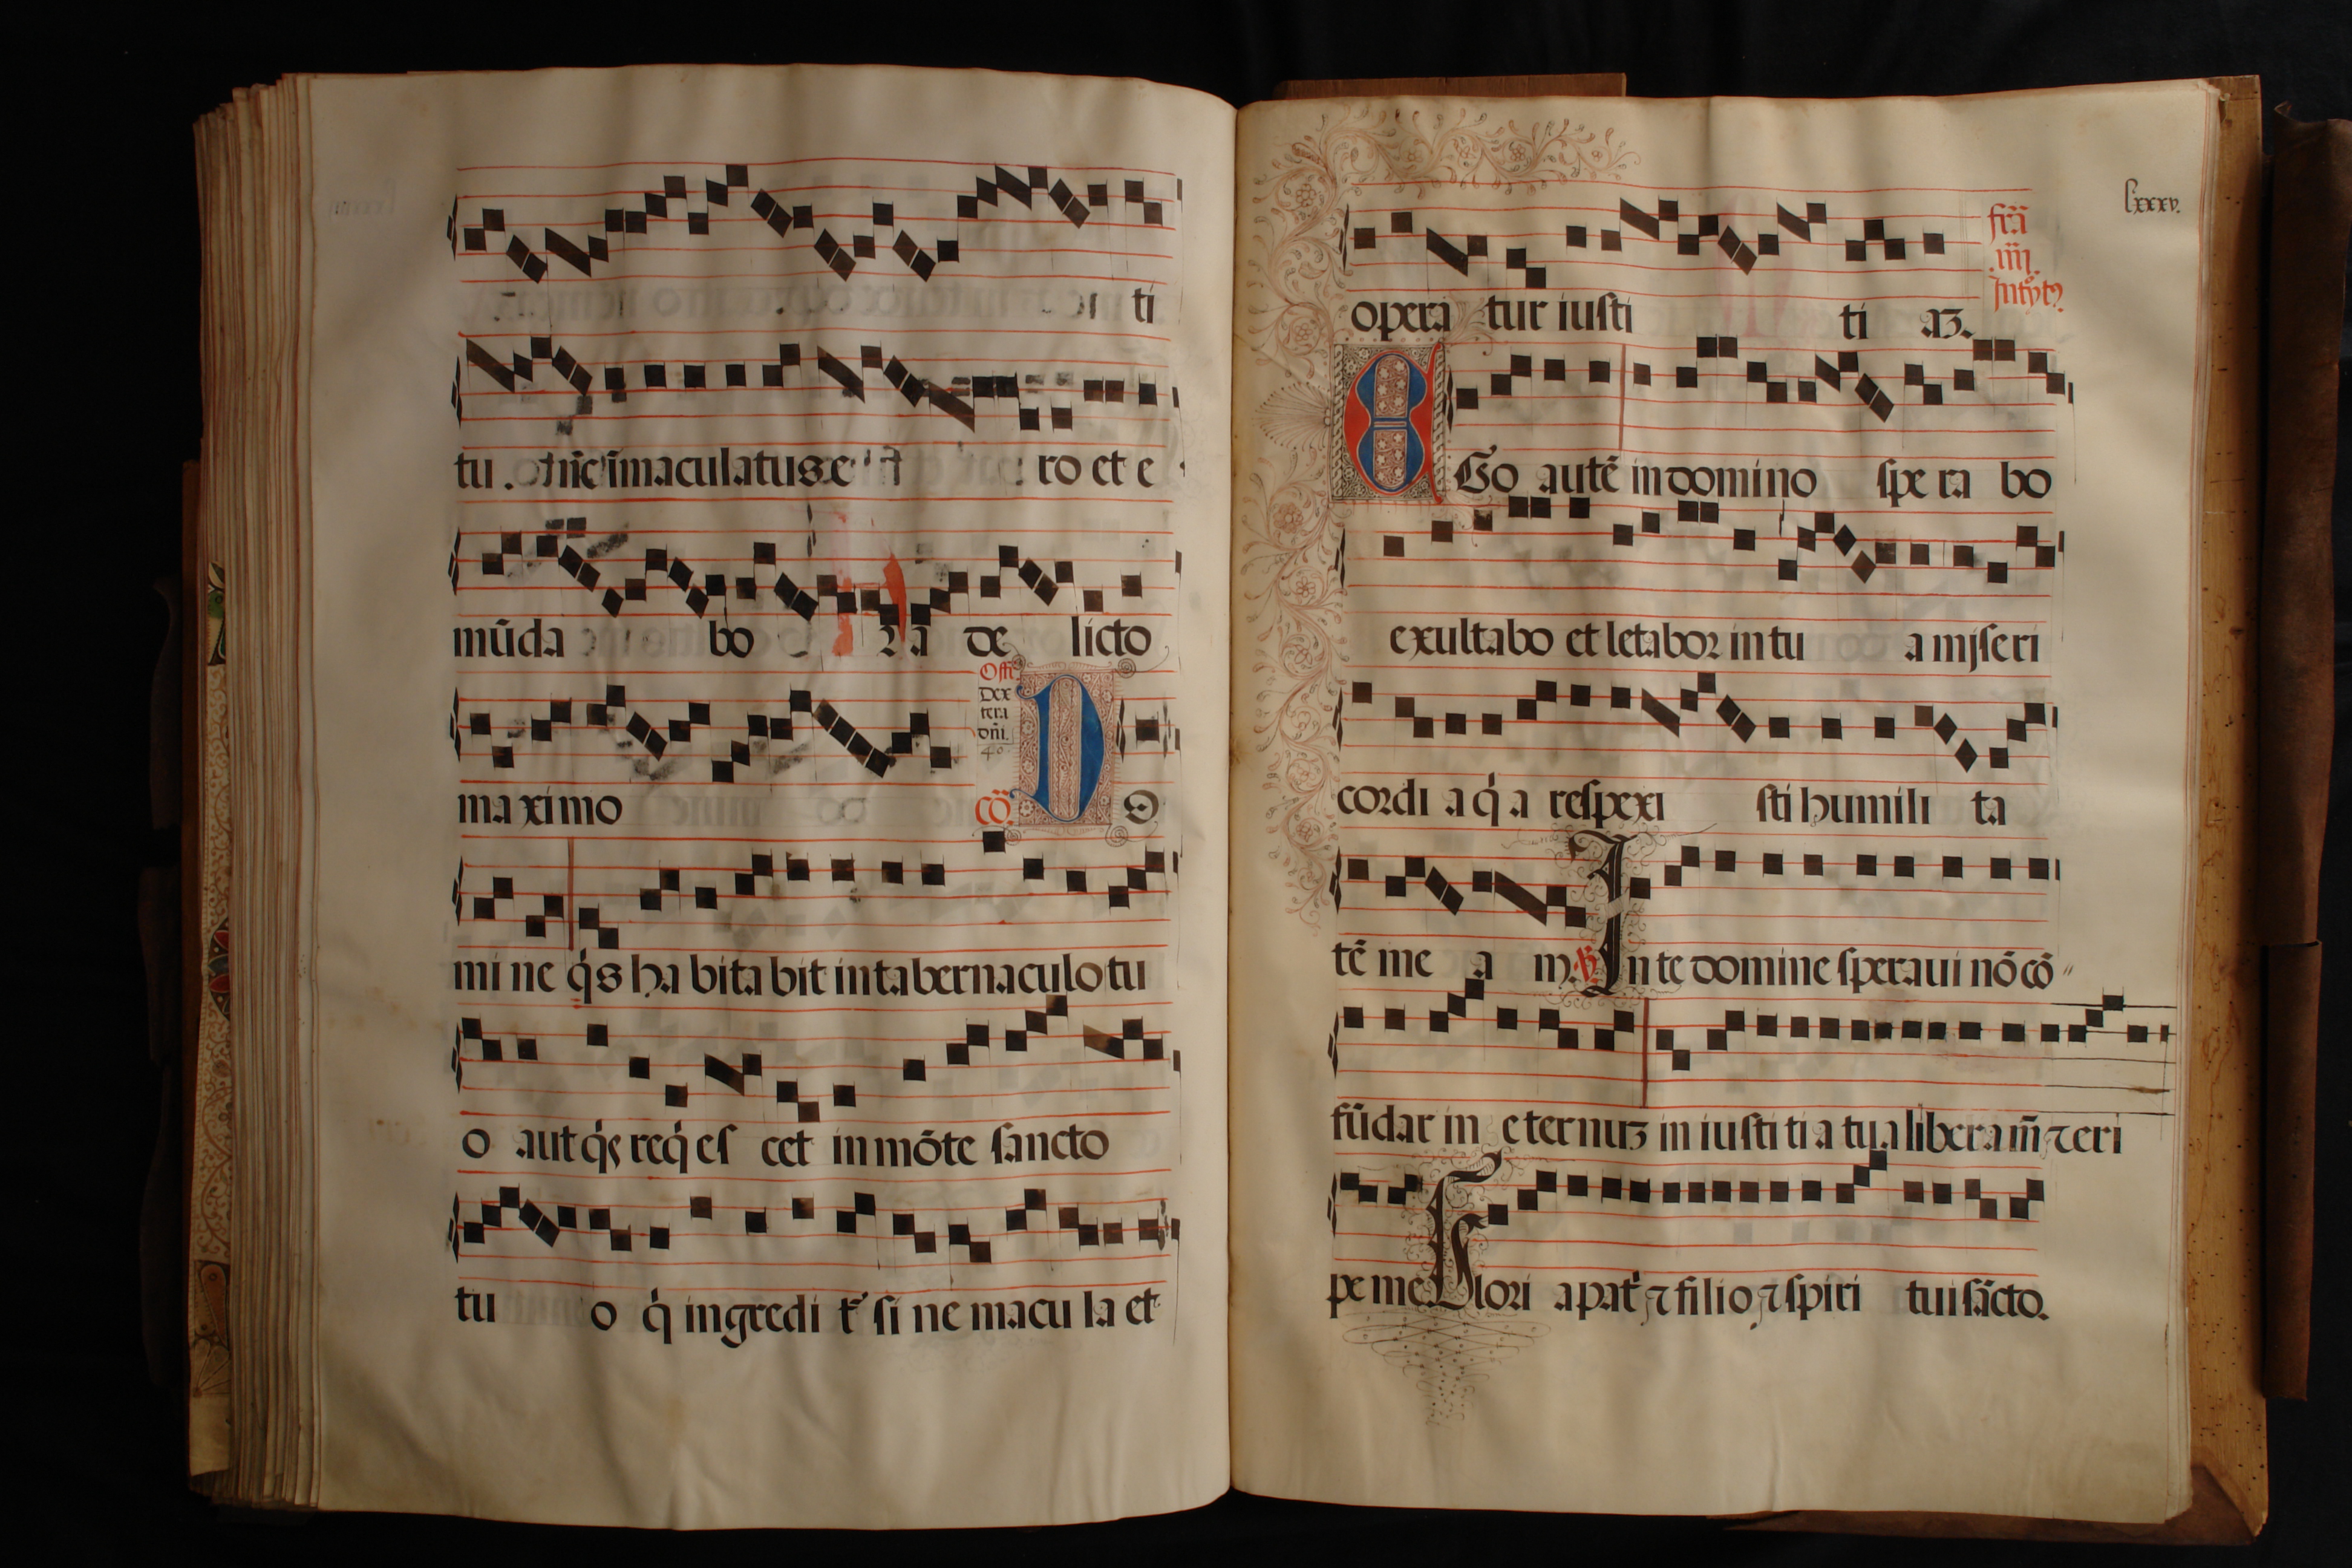 ti
tu. immaculatus e ro et e
mūda bo ra de licto
Offr̄. Dex tera dn̄i. 40
maximo cō. D O
mi ne q̇s ha bita bit in tabernaculo tu
o aut q̇s req̇ es cet in mōte sancto
tu o q̇ ingredi t᷑ si ne macu la et
lxxxv.
opera tur iusti ti aʒ.
fr̄a .iiij. Introytꝰ
EGo autē in domino spe ra bo
exultabo et letabor in tu a miseri
cordi a q̇ a respexi sti humili ta
tē me a m. ℣. In te domine speraui nō cō〃
fūdar in eternuʒ in iusti ti a tua libera m̄ ⁊ eri
pe me Glori a pat̓ ⁊ filio ⁊ spiri tui sācto.